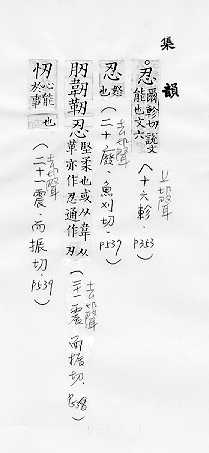 集韻
忍 爾軫切說文能也文六 上聲(十六軫．P353)
忍 怒也 去聲(二十廢．魚刈切．P539)
肕韌靭忍 堅柔也或从韋从革亦作忍通作刃 去聲(二十一震．而振切．P538)
㣼 心能於事也 去聲(二十一震．而振切．P539)